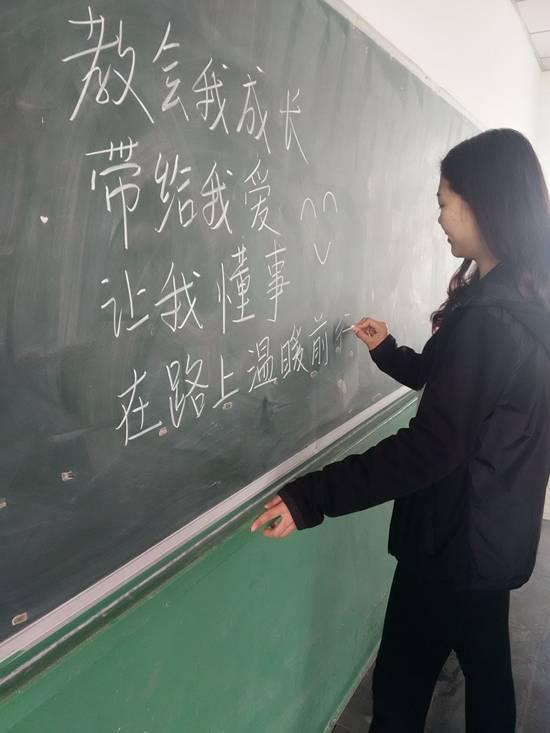 教会我成长
带给我爱
让我懂事
在路上温暖前行